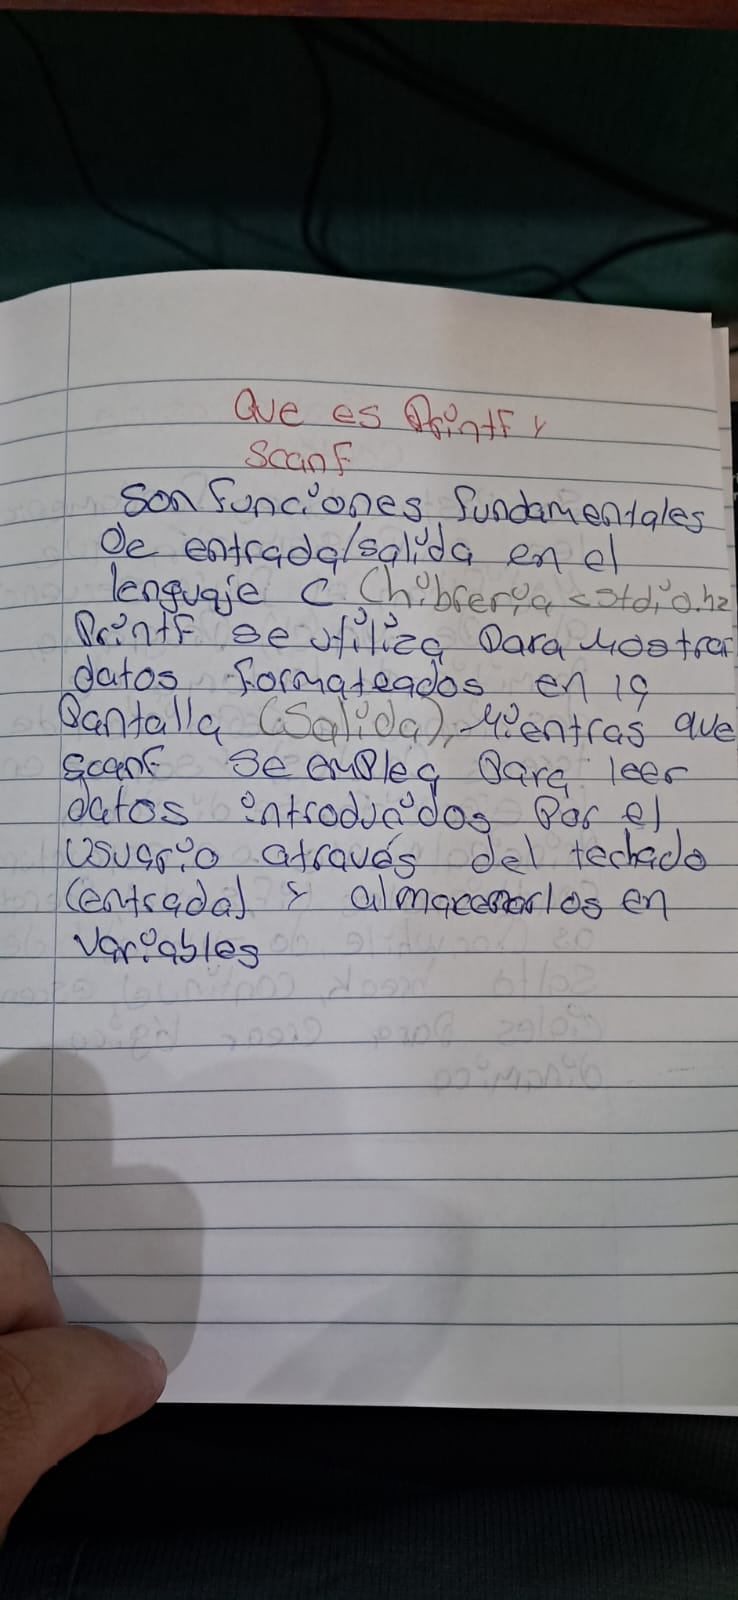 Que es Printf y
Scanf
Son funciones fundamentales
de entrada/salida en el
lenguaje C Chibrería <stdio.hz
Printf se utiliza para mostrar
datos formateados en la
Pantalla (Salida), Mientras que
scanf se emplea para leer
datos introducidos por el
Usuario através del techado
(entrada) y almacenarlos en
Variables